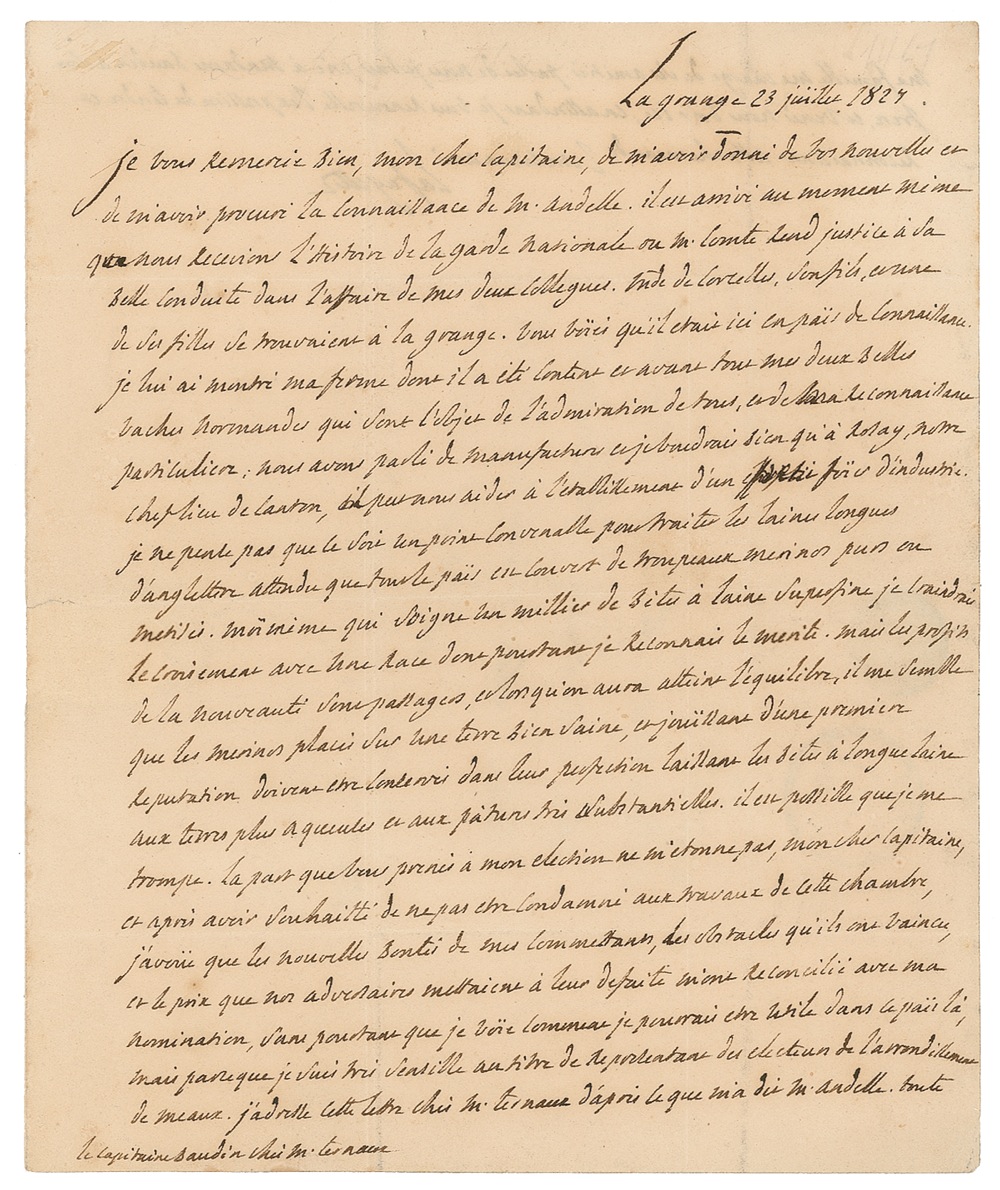 La grange 23 juillet 1827.
je vous remercie bien, mon cher capitaine, de m'avoir donné de vos nouvelles et
de m'avoir procuré la connaissance de m. andelle. il est arrivé au moment même
que nous recevions l'histoire de la garde nationale ou m. Comte rend justice à sa
belle conduite dans l'affaire de mes deux collegues. de Corcelles, son fils, et une
de ses filles se trouvaient à la grange. vous voïés qu'il etait ici en païs de connaissance.
je lui ai montré ma ferme dont il a été content et avant tout mes deux belles
vaches normandes qui sont l'objet de l'admiration de tous, et de ma reconnaissance
particuliere; nous avons parlé de manufactures et je voudrais bien qu'à Rosay, notre
chef lieu de canton, il put nous aider à l'etablissement d'un foïer d'industrie.
je ne pense pas que ce soit un point convenable pour traiter les laines longues
d'angleterre attendu que tout le païs est couvert de troupeaux merinos purs ou
metisés. moimême qui soigne un millier de bêtes à laine superfine je craindrais
le croisement avec une race dont pourtant je reconnais le merite. mais les profits
de la nouveauté sont passagers, et lorsqu'on aura atteint l'équilibre, il me semble
que les merinos placés sur une terre bien saine, et jouissant d'une premiere
reputation doivent etre conservés dans leur perfection laissant les bêtes à longue laine
aux terres plus aqueuses et aux pâtures très substantielles. il est possible que je me
trompe. la part que vous prenés à mon election ne m'etonne pas, mon cher capitaine,
et après avoir souhaitté de ne pas etre condamné aux travaux de cette chambre,
j'avoüe que les nouvelles bontés de mes commettants, les obstacles qu'ils ont vaincu,
et le prix que nos adversaires mettaient à leur defaite m'ont reconcilié avec ma
nomination, sans pourtant que je voïe comment je pourrais etre utile dans ce païs là,
mais parceque je suis très sensible au titre de representant des electeurs de l'arrondissement
de meaux. j'adresse cette lettre chés m. ternaux d'après ce que m'a dit m. andelle. toute
le capitaine Baudin chés m. ternaux